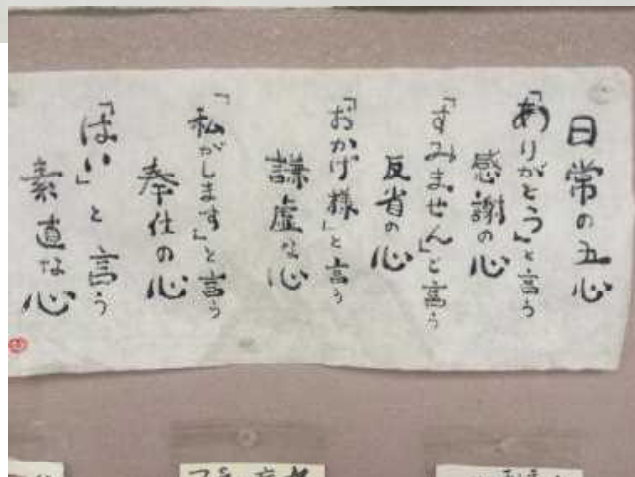 日常の五心
「ありがとう」と言う
感謝の心
「すみません」と言う
反省の心
「おかげ様」と言う
謙虚な心
「私がします」と言う
奉仕の心
「はい」と言う
素直な心